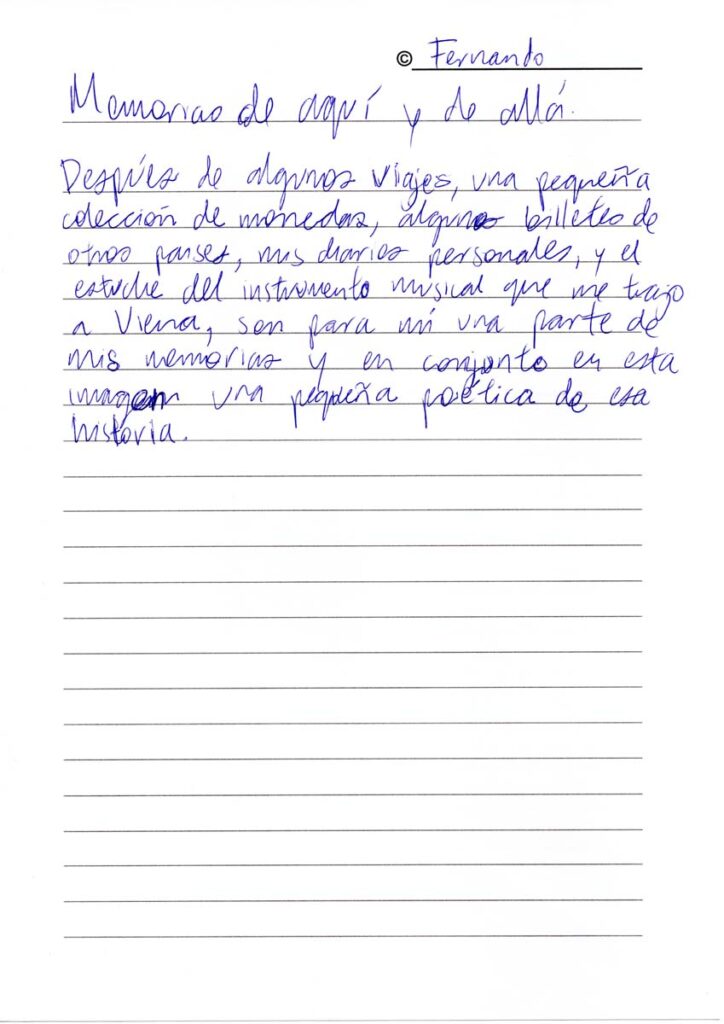 © Fernando
Memorias de aquí y de allá.
Después de algunos viajes, una pequeña
colección de monedas, algunos billetes de
otros paises, mis diarios personales, y el
estuche del instrumento musical que me trajo
a Viena, son para mí una parte de
mis memorias y en conjunto en esta
imagen una pequeña poética de esa
historia.